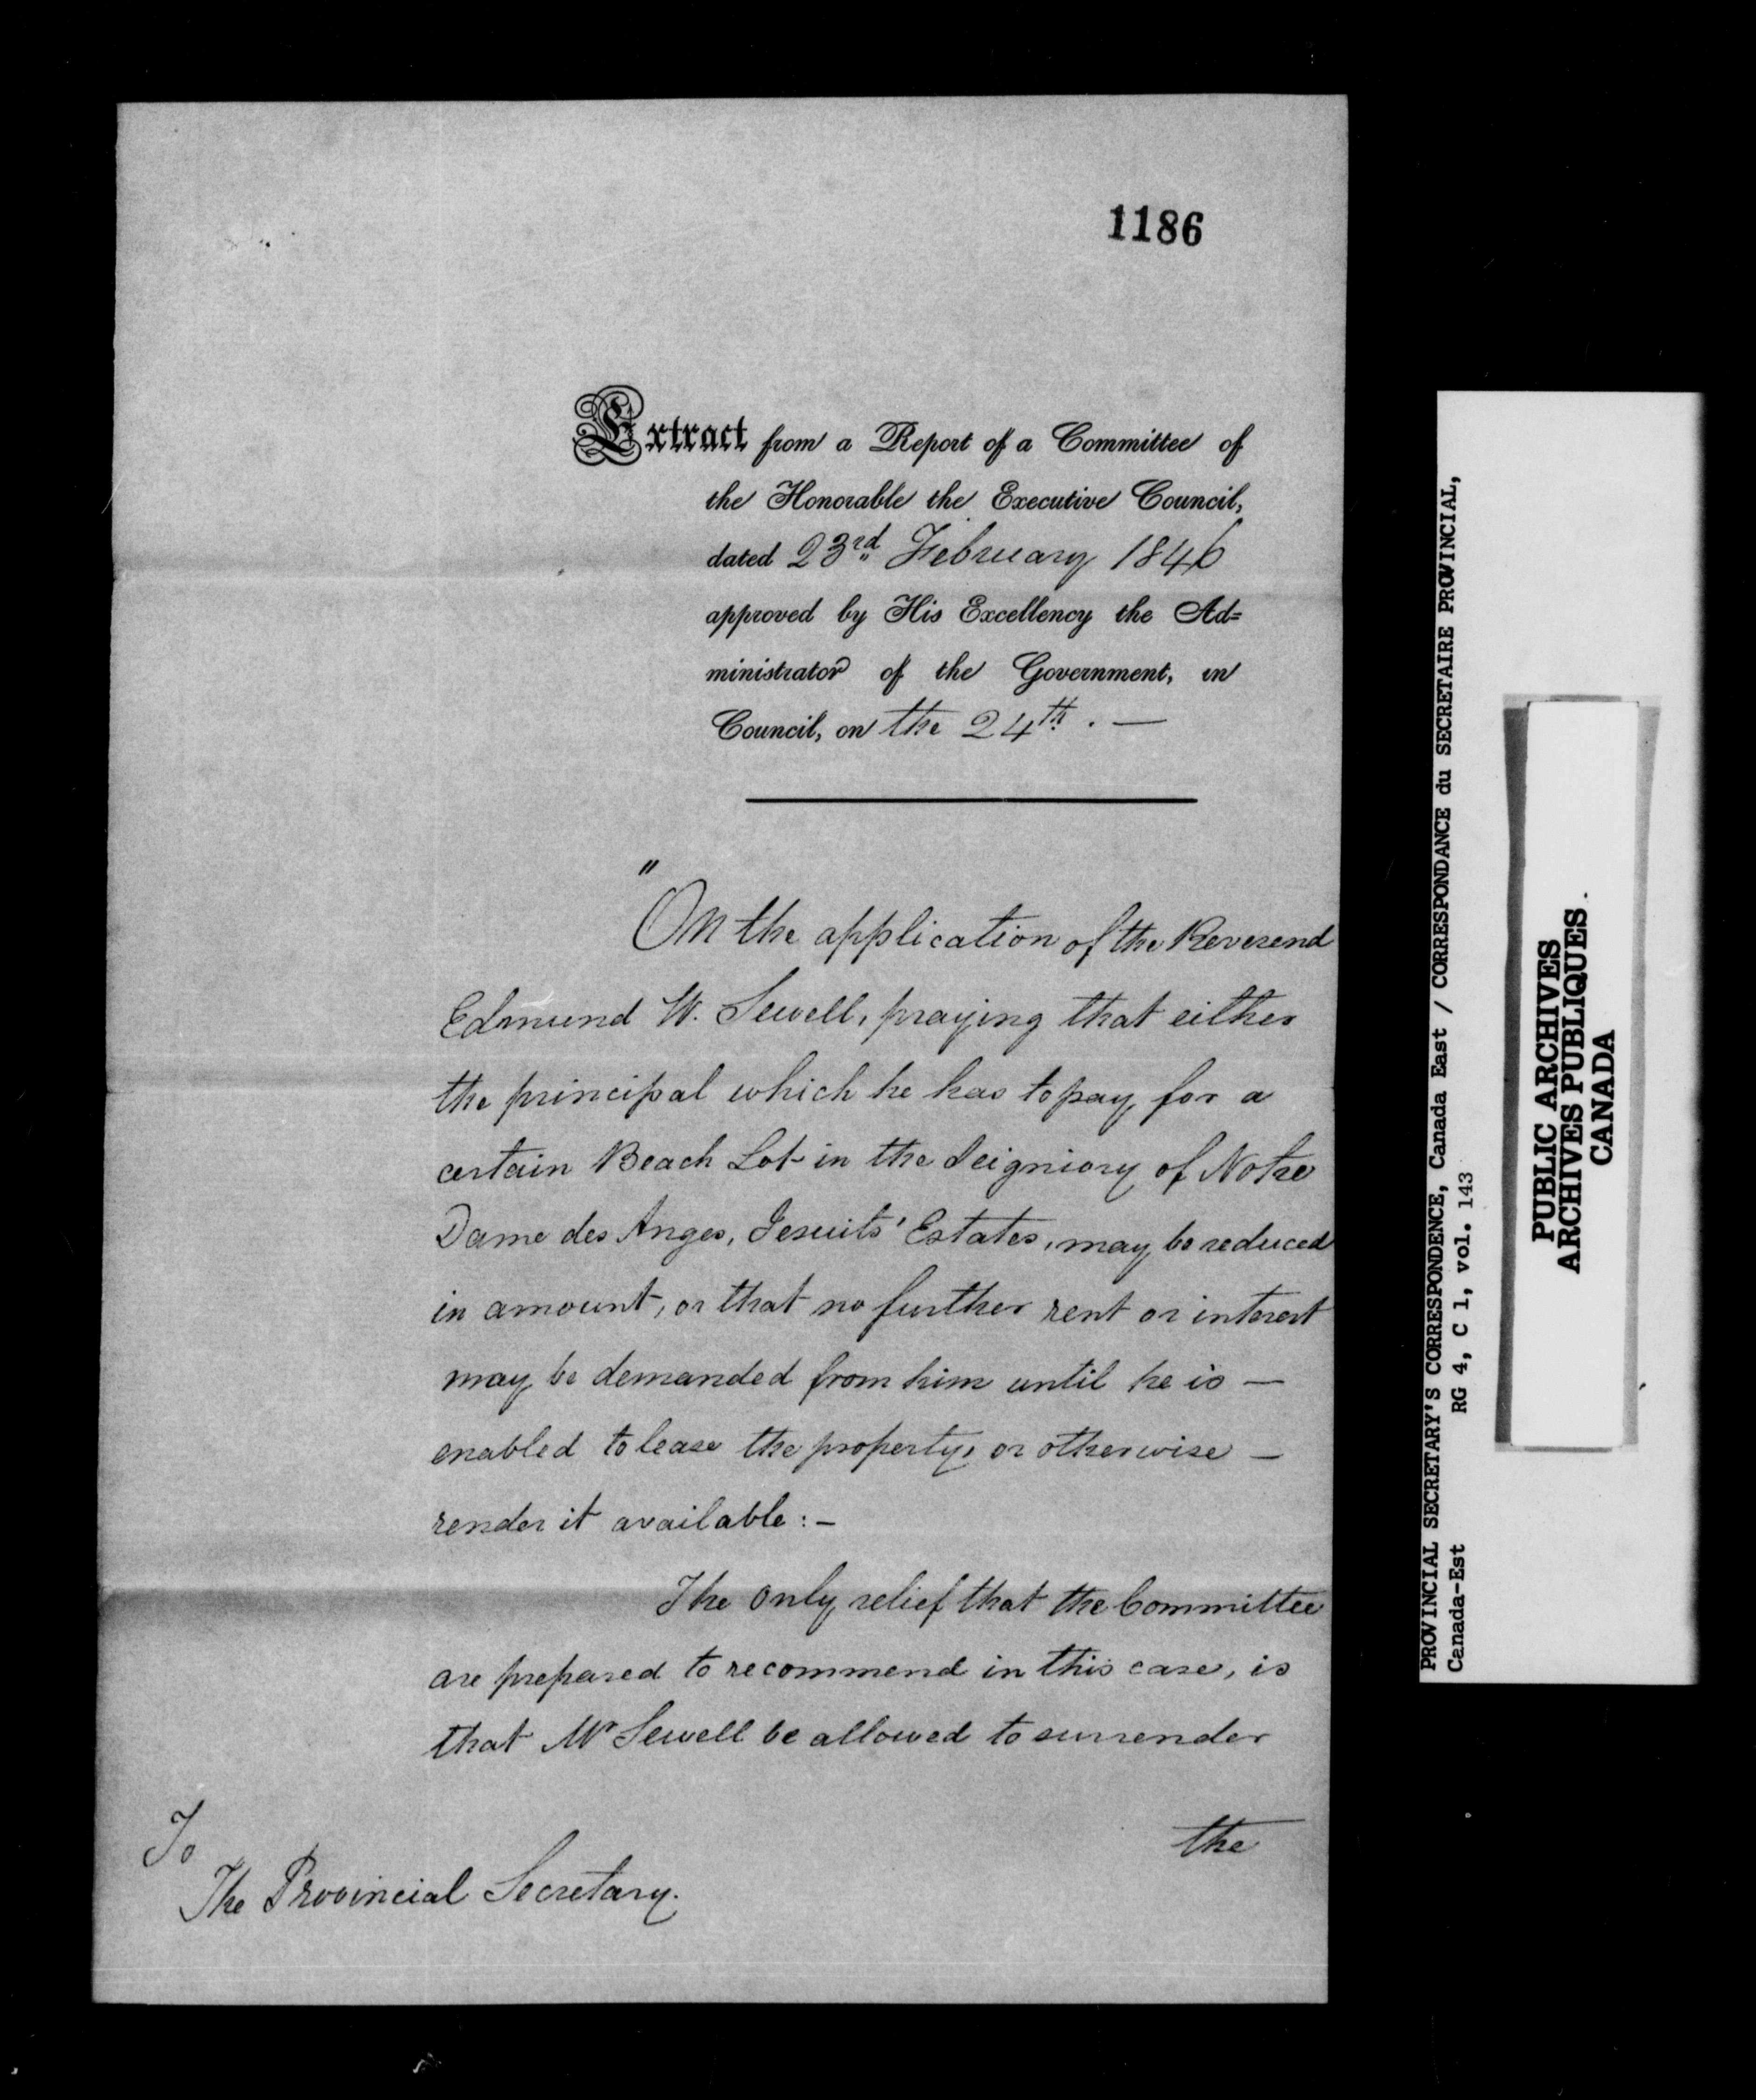 1186
Extract from a Report of a Committee of
the Honorable the Executive Council,
dated 23rd February 1846
approved by His Excellency the Ad=
ministrator of the Government, in
Council, on the 24th. —
"On the application of the Reverend
Edmund W. Sewell, praying that either
the principal which he has to pay for a
certain Beach Lot in the Seigniory of Notre
Dame des Anges, Jesuits' Estates, may be reduced
in amount, or that no further rent or interest
may be demanded from him until he is —
enabled to lease the property, or otherwise —
render it available: —
The only relief that the Committee
are prepared to recommend in this case, is
that Mr Sewell be allowed to surrender
the
To
The Provincial Secretary.
PROVINCIAL SECRETARY'S CORRESPONDENCE, Canada East / CORRESPONDANCE du SECRETAIRE PROVINCIAL,
Canada-Est RG 4, C 1, vol. 143
PUBLIC ARCHIVES
ARCHIVES PUBLIQUES
CANADA